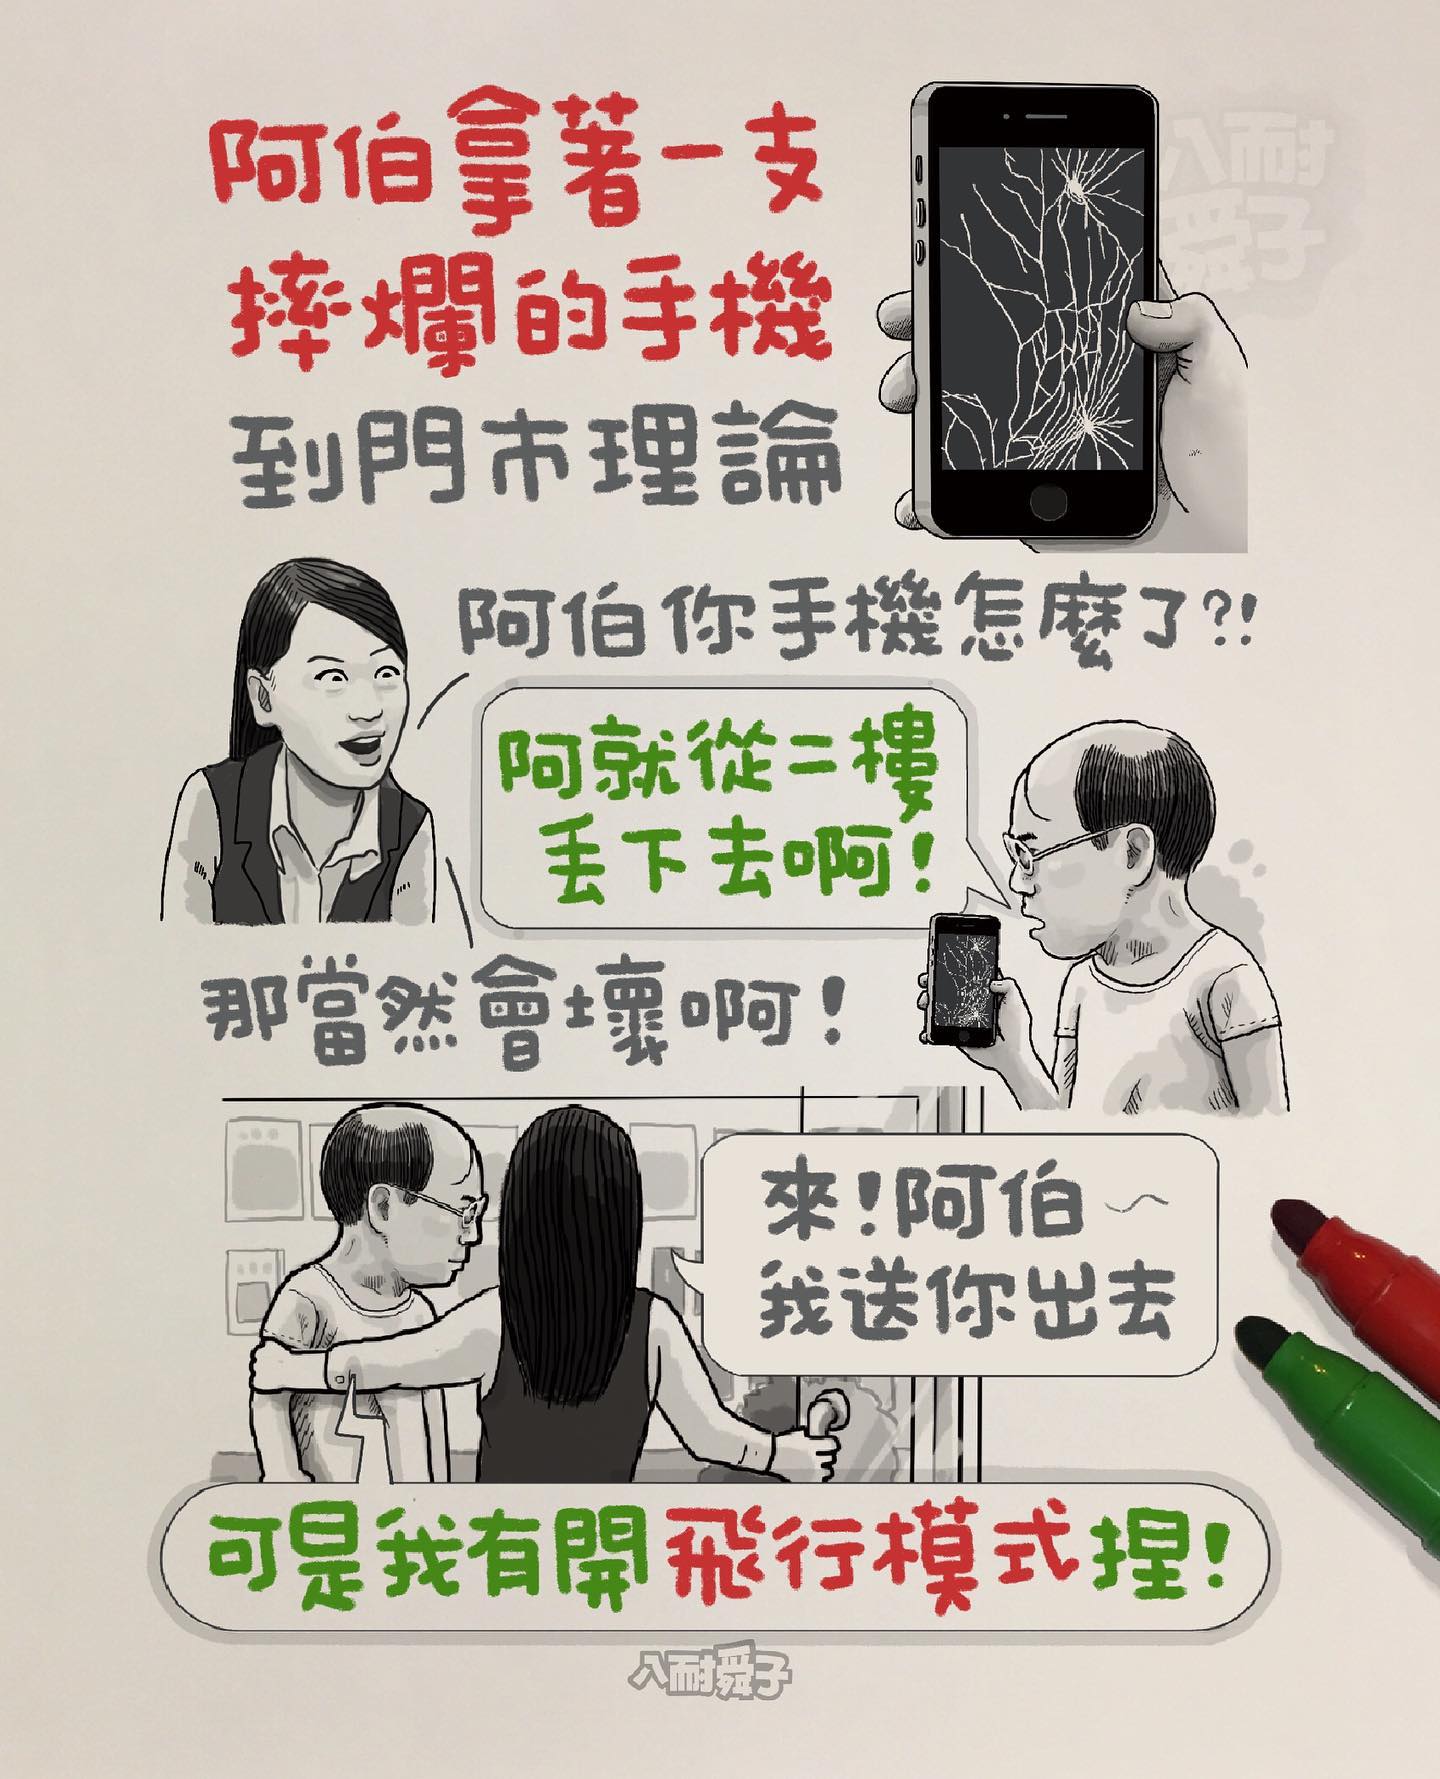 阿伯拿著一支
摔爛的手機
到門市理論
八耐
舜子
阿伯你手機怎麼了?!
阿就從二樓
丟下去啊!
那當然會壞啊!
來!阿伯~
我送你出去
可是我有開飛行模式捏!
八耐舜子